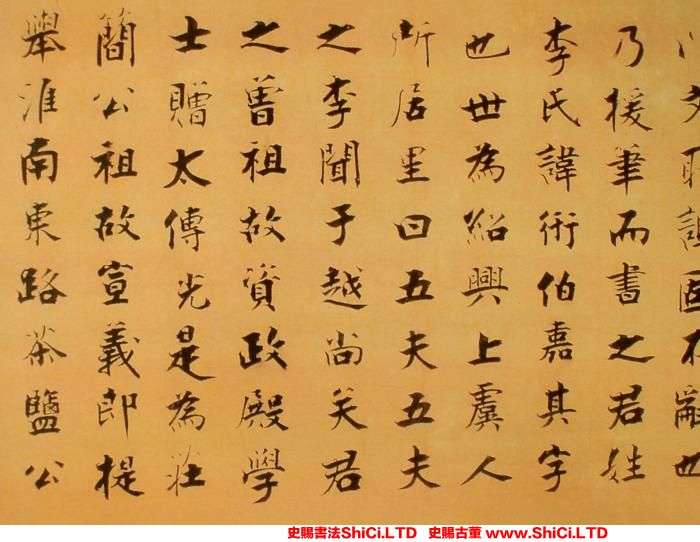 固不辭也
乃援筆而書之君姓
李氏諱術伯嘉其字
也世為紹興上虞人
所居里曰五夫五夫
之李聞于越尚矣君
之曾祖故資政殿學
士贈太傅光是為莊
簡公祖故宣義郎提
舉淮南東路茶鹽公
史賜書法ShiCi.LTD 史賜古董 www.ShiCi.LTD